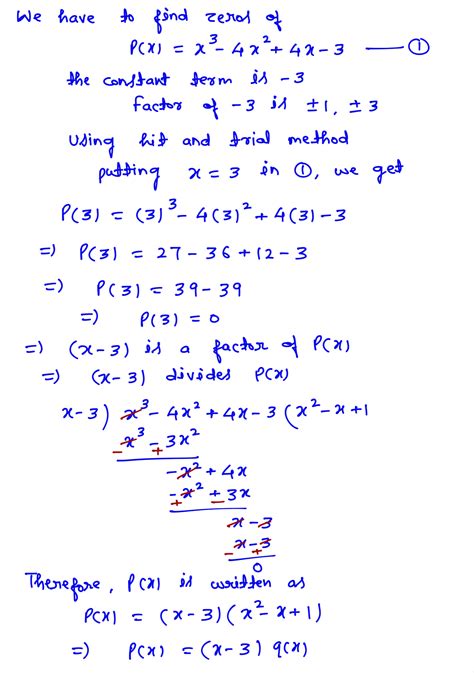 We have to find zeros of
P(x) = x³ - 4x² + 4x - 3 —— ①
the constant term is -3
factor of -3 is ±1, ±3
Using hit and trial method
putting x = 3 in ①, we get
P(3) = (3)³ - 4(3)² + 4(3) - 3
=) P(3) = 27 - 36 + 12 - 3
=) P(3) = 39 - 39
=) P(3) = 0
=) (x-3) is a factor of P(x)
=) (x-3) divides P(x)
x-3) x³ - 4x² + 4x - 3 (x² - x + 1
x³ - 3x²
- +
-x² + 4x
-x² + 3x
+ -
x - 3
x - 3
- +
0
Therefore, P(x) is written as
P(x) = (x-3)(x² - x + 1)
=) P(x) = (x-3) q(x)